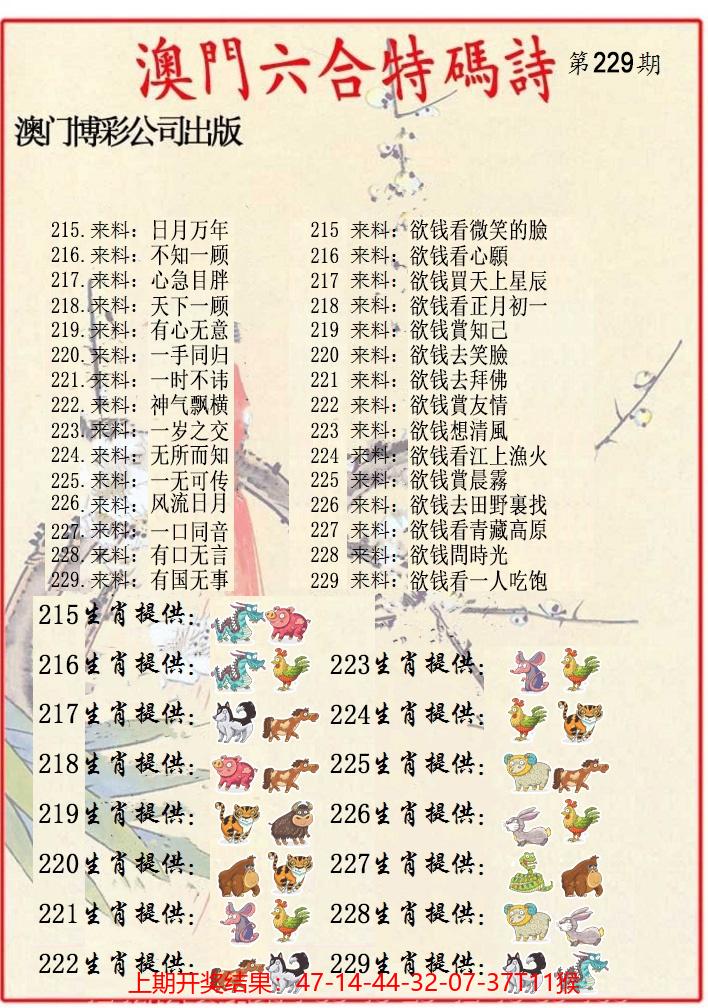 澳門六合特碼詩 第229期
澳门博彩公司出版
215.来料：日月万年 215 来料：欲钱看微笑的臉
216.来料：不知一顾 216 来料：欲钱看心願
217.来料：心急目胖 217 来料：欲钱買天上星辰
218.来料：天下一顾 218 来料：欲钱看正月初一
219.来料：有心无意 219 来料：欲钱賞知己
220.来料：一手同归 220 来料：欲钱去笑臉
221.来料：一时不讳 221 来料：欲钱去拜佛
222.来料：神气飘横 222 来料：欲钱賞友情
223.来料：一岁之交 223 来料：欲钱想清風
224.来料：无所而知 224 来料：欲钱看江上漁火
225.来料：一无可传 225 来料：欲钱賞晨霧
226.来料：风流日月 226 来料：欲钱去田野裏找
227.来料：一口同音 227 来料：欲钱看青藏高原
228.来料：有口无言 228 来料：欲钱問時光
229.来料：有国无事 229 来料：欲钱看一人吃饱
215生肖提供：
216生肖提供： 223生肖提供：
217生肖提供： 224生肖提供：
218生肖提供： 225生肖提供：
219生肖提供： 226生肖提供：
220生肖提供： 227生肖提供：
221生肖提供： 228生肖提供：
222生肖提供： 229生肖提供：
上期开奖结果：47-14-44-32-07-37T11猴